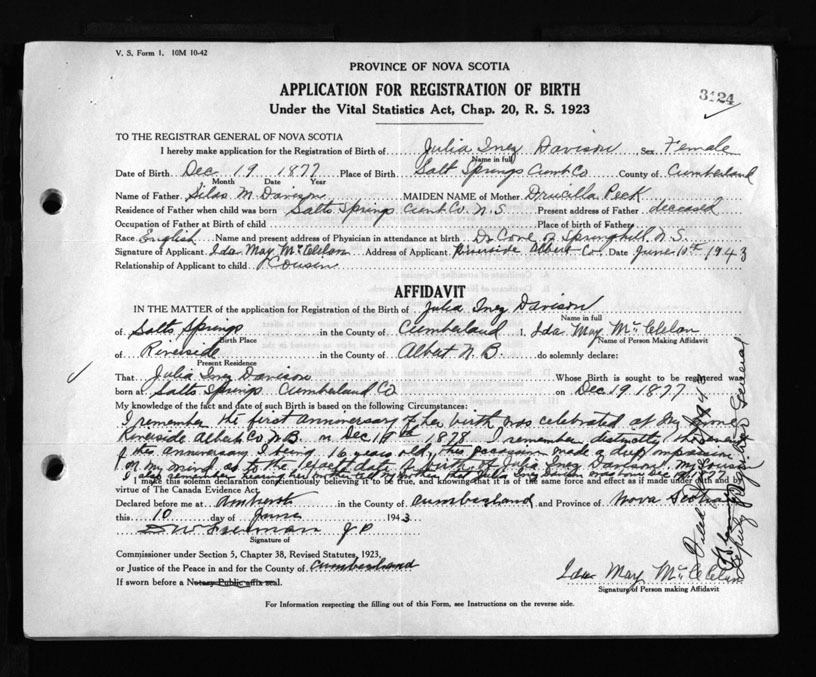 V. S. Form 1. 10M 10-42
PROVINCE OF NOVA SCOTIA
APPLICATION FOR REGISTRATION OF BIRTH
3124
Under the Vital Statistics Act, Chap. 20, R. S. 1923
TO THE REGISTRAR GENERAL OF NOVA SCOTIA
I hereby make application for the Registration of Birth of Julia Inez Davison Sex Female
Name in full
Date of Birth Dec 19 1877 Place of Birth Salt Springs Cumb Co County of Cumberland
Month Date Year
Name of Father Silas M. Davison MAIDEN NAME of Mother Drucilla Peck
Residence of Father when child was born Salts Springs Cumb Co. N.S. Present address of Father deceased
Occupation of Father at Birth of child Place of birth of Father
Race English Name and present address of Physician in attendance at birth Dr Cove of Springhill N.S.
Signature of Applicant Ida May McClelan Address of Applicant Riverside Albert Co. Date June 10th 1943
Relationship of Applicant to child Cousin
AFFIDAVIT
IN THE MATTER of the application for Registration of the Birth of Julia Inez Davison
Name in full
of Salts Springs in the County of Cumberland I, Ida May McClelan
Birth Place Name of Person Making Affidavit
of Riverside in the County of Albert N.B. do solemnly declare:
Present Residence
That Julia Inez Davison Whose Birth is sought to be registered was
born at Salts Springs Cumberland Co on Dec 19 1877
My knowledge of the fact and date of such Birth is based on the following Circumstances:
I remember the first anniversary of her birth was celebrated at my home
Riverside Albert Co N.B. on Dec 19th 1878 I remember distinctly the
of this anniversary I being 16 years old, this occasion made a deep impression
on my mind as to the exact date of birth of Julia Inez Davison, my Cousin
I also remember
I make this solemn declaration conscientiously believing it to be true, and knowing that it is of the same force and effect as if made under oath and by
virtue of The Canada Evidence Act.
Declared before me at Amherst in the County of Cumberland and Province of Nova Scotia
this 10 day of June 1943
Freeman J P
Signature of
Commissioner under Section 5, Chapter 38, Revised Statutes, 1923,
or Justice of the Peace in and for the County of Cumberland
If sworn before a Notary Public affix seal.
Ida May McClelan
Signature of Person making Affidavit
Deputy Registrar General
For Information respecting the filling out of this Form, see Instructions on the reverse side.